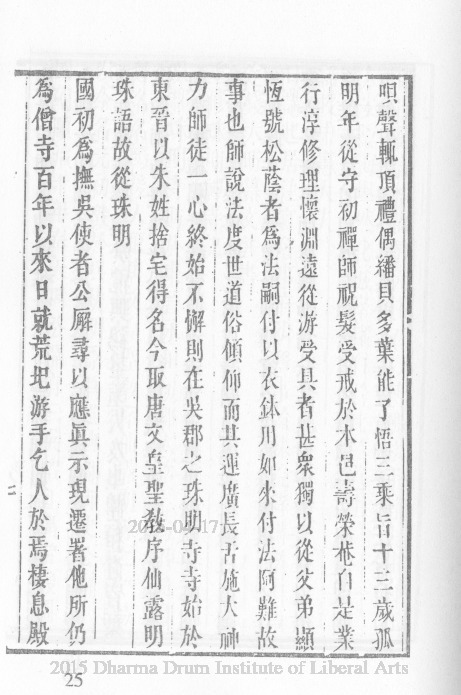 唄聲輒頂禮偶繙貝多葉能了悟三乘旨十三歲孤
明年從守初禪師祝髮受戒於木邑壽榮菴自是業
行淳修理懷淵遠從游受具者甚衆獨以從父弟顯
恆號松蔭者爲法嗣付以衣鉢用如來付法阿難故
事也師說法度世道俗傾仰而其運廣長舌施大神
力師徒一心終始不懈則在吳郡之珠明寺寺始於
東晉以朱姓捨宅得名今取唐文皇聖敎序仙露明
珠語故從珠明
國初爲撫吳使者公廨尋以應眞示現遷署他所仍
爲僧寺百年以來日就荒圮游手乞人於焉棲息殿
2015 Dharma Drum Institute of Liberal Arts
25